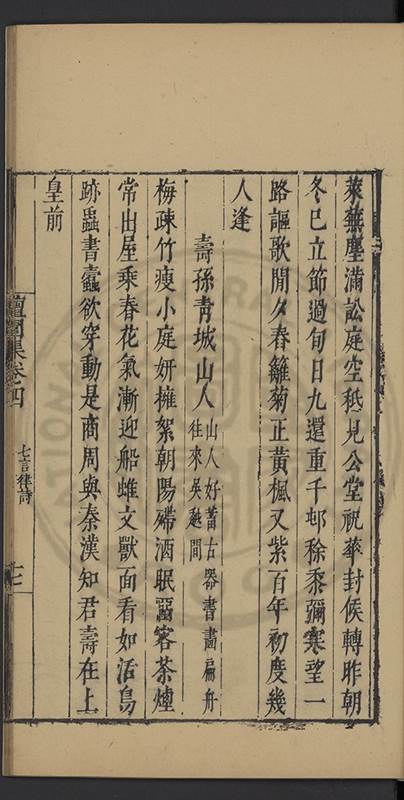 萊蕪塵滿訟庭空秪見公堂祝華封侯轉昨朝
冬巳立節過旬日九還重千邨稌黍彌寒望一
路謳歌聞夕舂籬菊正黃楓又紫百年初度幾
人逢
壽孫青城山人
山人好蓄古器書畫扁舟
往來吳越間
梅疎竹瘦小庭妍擁絮朝陽殢酒眠畱客茶煙
常出屋乘春花氣漸迎船蜼文獸面看如活鳥
跡蟲書蠧欲穿動是商周與秦漢知君壽在上
皇前
集卷四
七言律詩